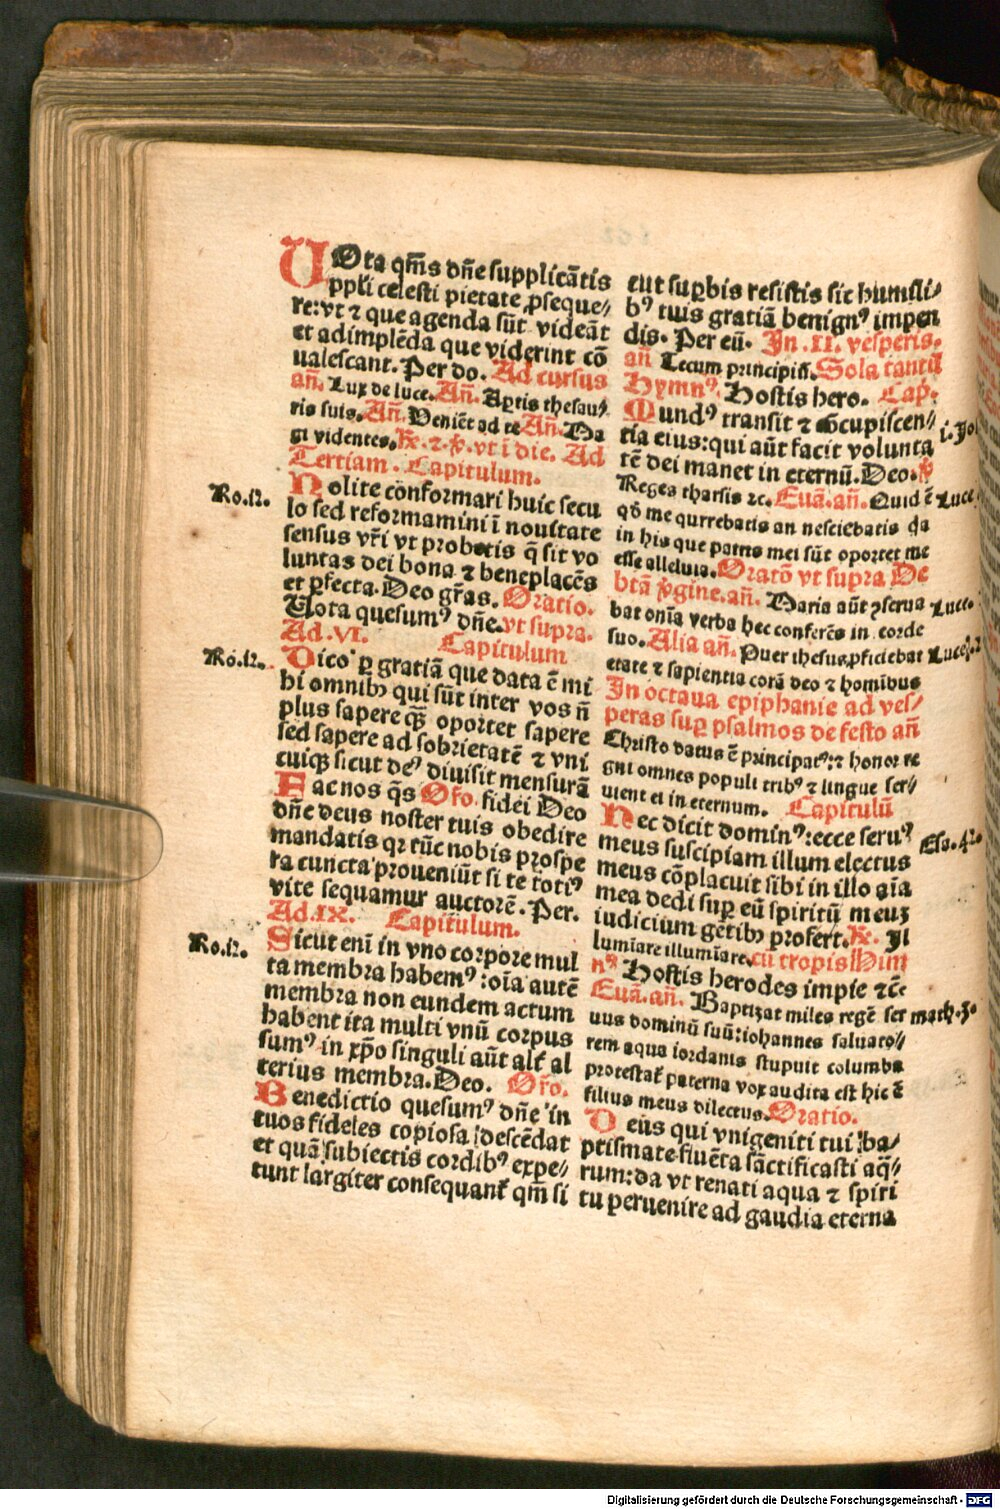 VOta qm̃s dñe supplicãtis
ppli celesti pietate ꝓseque/
re: vt ⁊ que agenda sũt videãt
et adimplẽda que viderint cõ
ualescant. Per do. Ad cursus
añ. Lux de luce. Añ. Aꝑtis thesau/
ris suis. Añ. Veniẽt ad te Añ. Ma
gi videntes. R̃. ⁊ ṽ. vt ĩ die. Ad
Tertiam. Capitulum.
Ro.12.
Nolite conformari huic secu
lo sed reformamini ĩ nouitate
sensus vr̃i vt probetis q̃ sit vo
luntas dei bona ⁊ beneplacẽs
et ꝑfecta. Deo gr̃as. Oratio.
Uota quesumꝰ dñe. vt supra.
Ad .VI. Capitulum
Ro.12.
Dico ꝑ gratiã que data ẽ mi
hi omnibꝫ qui sũt inter vos ñ
plus sapere q̃ꝫ oportet sapere
sed sapere ad sobrietatẽ ⁊ vni
cuiqꝫ sicut deꝰ diuisit mensurã
Fac nos q̃s Oꝛ̃o. fidei Deo
dñe deus noster tuis obedire
mandatis qꝛ tũc nobis prospe
ra cuncta proueniũt si te totiꝰ
vite sequamur auctorẽ. Per.
Ad .IX. Capitulum.
Ro.12.
Sicut eni in vno corpore mul
ta membra habemꝰ: oĩa autẽ
membra non eundem actum
habent ita multi vnũ corpus
sumꝰ in xp̃o singuli aũt alt̃ al
terius membra. Deo. Oꝛ̃o.
Benedictio quesumꝰ dñe in
tuos fideles copiosa descẽdat
et quã subiectis cordibꝰ expe/
tunt largiter consequant̃ qm̃ si
cut suꝑbis resistis sic humili/
bꝰ tuis gratiã benignꝰ impen
dis. Per eũ. In .II. vesperis.
añ Tecum principiũ. Sola tantũ
Hymnꝰ. Hostis hero. Cap.
Mundꝰ transit ⁊ cõcupiscen/
tia eius: qui aũt facit volunta
tẽ dei manet in eternũ. Deo. ṽ
i.Jo
Reges tharsis ⁊c. Euã. añ. Quid ẽ
Luce.
qð me querebatis an nesciebatis qa
in his que patris mei sũt oportet me
esse alleluia. Oratõ vt supra De
btã v̓gine. añ. Maria aũt ꝯserua
Luce.
bat onĩa verba hec conferẽs in corde
suo. Alia añ. Puer ihesus ꝓficiebat
Luce.
etate ⁊ sapientia corã deo ⁊ hominibus
In octaua epiphanie ad ves/
peras suꝑ psalmos de festo añ
Christo datus ẽ principatꝰ: ⁊ honor re
gni omnes populi tribꝰ ⁊ lingue ser/
uient ei in eternum. Capitulũ
Hec dicit dominꝰ: ecce seruꝰ
Esa.42.
meus suscipiam illum electus
meus cõplacuit sibi in illo aĩa
mea dedi suꝑ eũ spiritũ meuꝫ
iudicium gẽtibꝫ profert. R̃. Il
luminare illuminare. cũ tropis Him
nꝰ Hostis herodes impie ⁊cẽ
Euã. añ. Baptizat miles regẽ ser
math.3.
uus dominũ suũ: iohannes saluato/
rem aqua iordanis stupuit columba
protestat̃ paterna vox audita est hic ẽ
filius meus dilectus. Oratio.
Deus qui vnigeniti tui ba/
ptismate fluẽta sãctificasti aq̃/
rum: da vt renati aqua ⁊ spiri
tu peruenire ad gaudia eterna
Digitalisierung gefördert durch die Deutsche Forschungsgemeinschaft - DFG